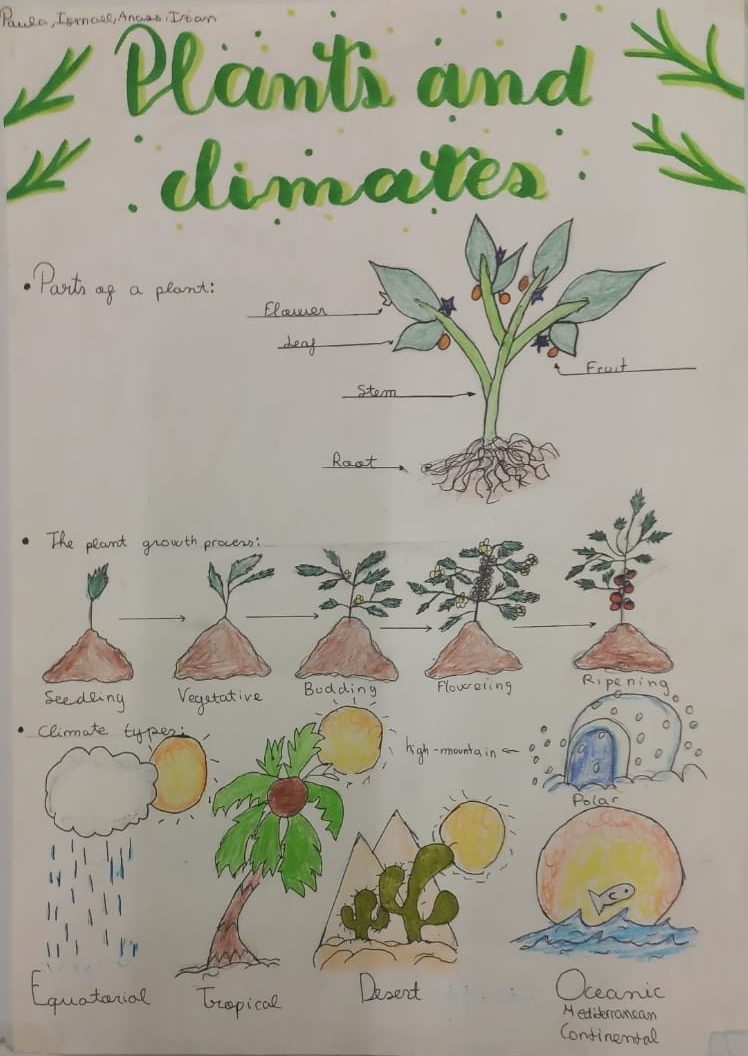 Paula, Ismael, Anass, Izan
Plants and
climates
• Parts of a plant:
Flower
Leaf
Fruit
Stem
Root
• The plant growth process:
Seedling
Vegetative
Budding
Flowering
Ripening
• Climate types:
high-mountain
Polar
Equatorial
Tropical
Desert
Oceanic
Mediterranean
Continental